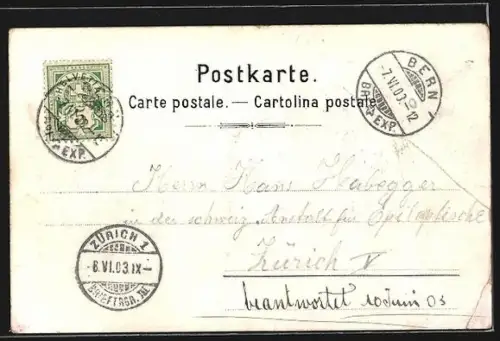 HELVETIA
EXP.
Postkarte.
Carte postale. — Cartolina postale.
BERN
-7.VI.03
12
BRF. EXP.
Herrn Hans Habegger
in der schweiz. Anstalt für Epileptische
Zürich V
ZÜRICH 1
8.VI.03.IX-
BRIEFTRGA.
beantwortet 10 Juni 03